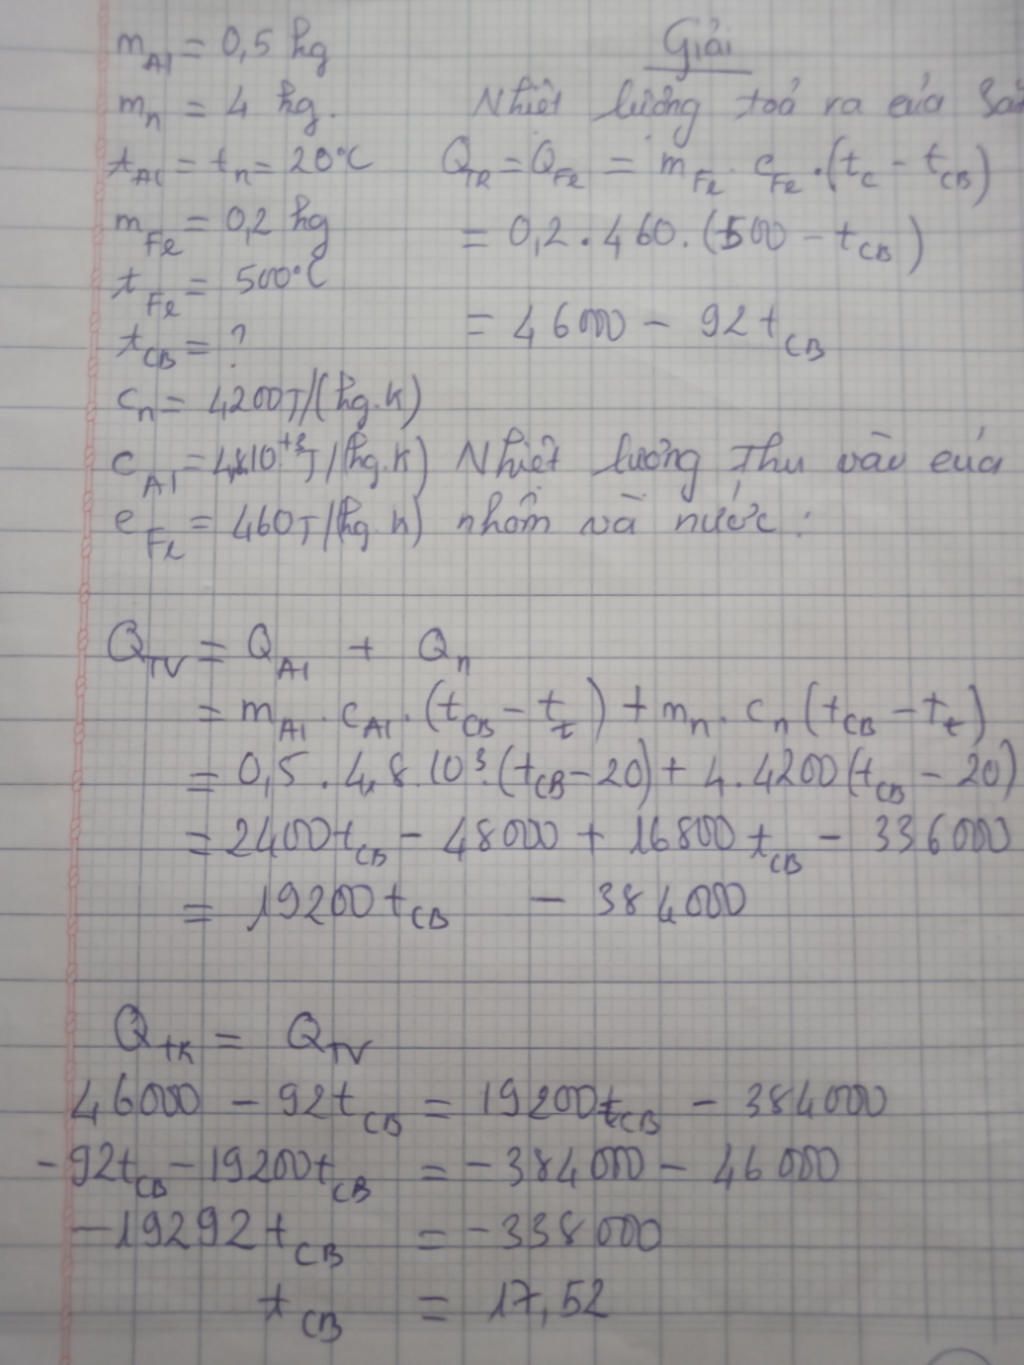 m_Al = 0,5 kg
m_n = 4 kg.
t_Al = t_n = 20°C
m_Fe = 0,2 kg
t_Fe = 500°C
t_CB = ?
c_n = 4200J/(kg.K)
c_Al = 4,8.10^+3 J/(kg.K)
c_Fe = 460J/(kg.K)
Giải
Nhiệt lượng toả ra của sắ
Q_TR = Q_Fe = m_Fe . c_Fe . (t_c - t_CB)
= 0,2 . 460 . (500 - t_CB)
= 46000 - 92 t_CB
Nhiệt lượng Thu vào của
nhôm và nước :
Q_TV = Q_Al + Q_n
= m_Al . c_Al . (t_CB - t_t) + m_n . c_n (t_CB - t_t)
= 0,5 . 4,8 . 10^3 . (t_CB - 20) + 4 . 4200 (t_CB - 20)
= 2400 t_CB - 48000 + 16800 t_CB - 336000
= 19200 t_CB - 384000
Q_tR = Q_TV
46000 - 92 t_CB = 19200 t_CB - 384000
- 92 t_CB - 19200 t_CB = - 384000 - 46000
- 19292 t_CB = - 338000
t_CB = 17,52